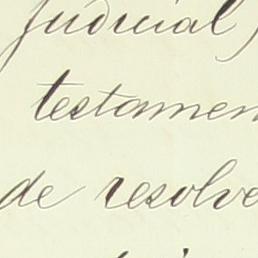 Judicial,
testamen
de resolve